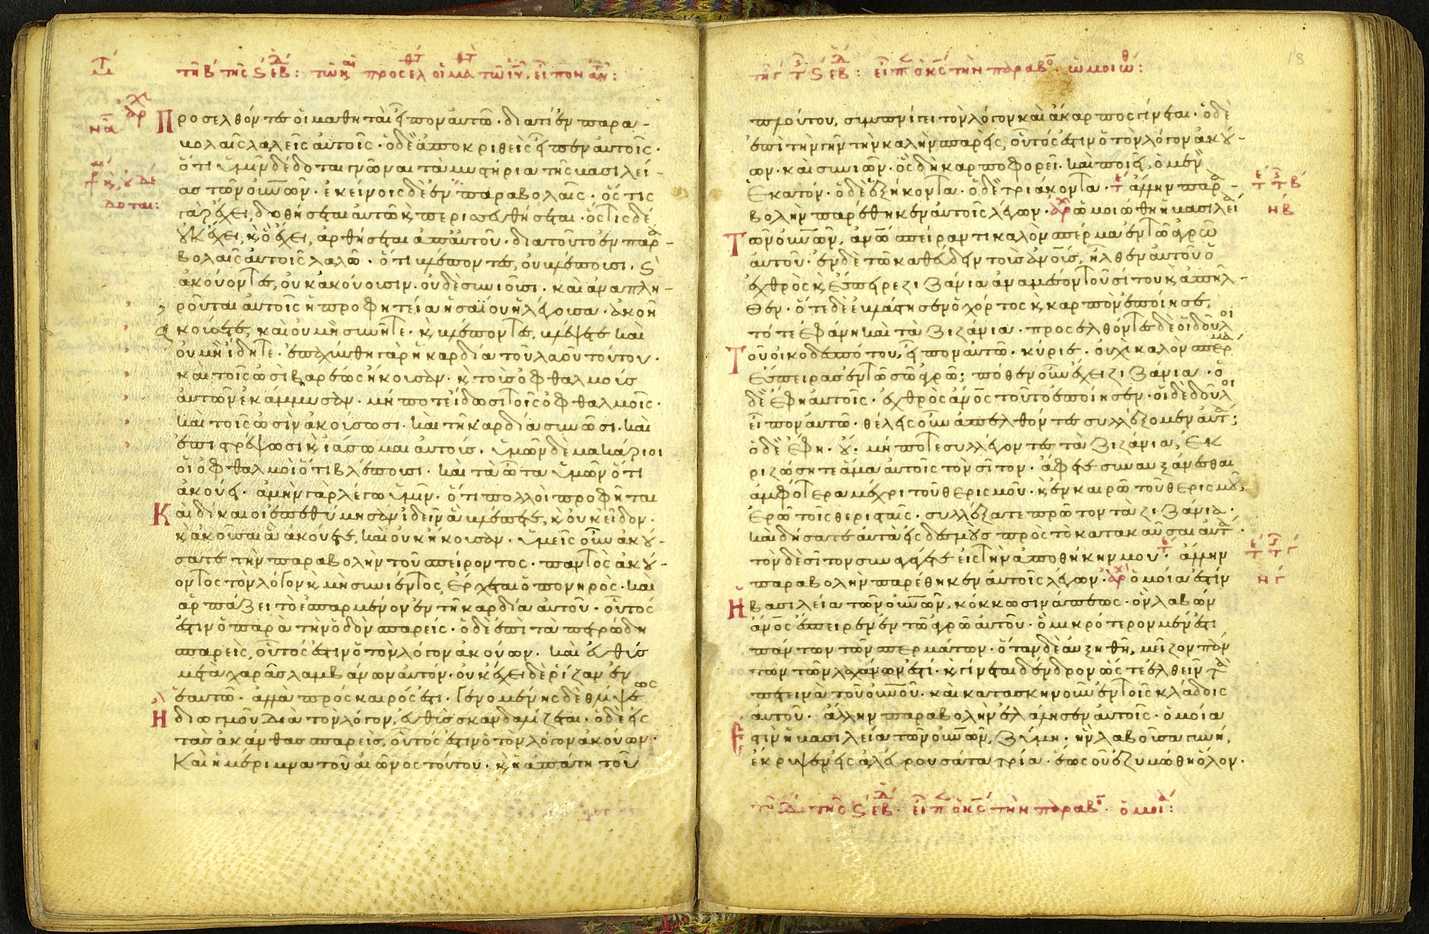 τῇ β´ τῆς ϛ ἑβδ: τῷ και προσελθ οἱ μαθτ τῷ ιυ, εἶπον αὐτ:
Προσελθόντες οἱ μαθηταὶ εἶπον αὐτῶ· διατί ἐν παρα-
βολαῖς λαλεῖς αὐτοῖς· ὁ δὲ ἀποκριθεὶς εἶπεν αὐτοῖς·
ὅτι ὑμῖν δέδοται γνῶναι τὰ μυστήρια τῆς βασιλεί-
ας τῶν οὐνῶν· ἐκείνοις δὲ ἐν παραβολαῖς· ὅστις
γὰρ ἔχει, δοθήσεται αὐτῶ κ̀ περισσευθήσεται· ὅστις δὲ
οὐκ ἔχει, κ̀ ὃ ἔχει, ἀρθήσεται ἀπ' αὐτοῦ· διατοῦτο ἐν παρα-
βολαῖς αὐτοῖς λαλῶ· ὅτι βλέποντες, οὐ βλέπουσι· κ̀
ἀκούοντες, οὐκ ἀκούουσιν· οὐδὲ συνιοῦσι· καὶ ἀναπλη-
ροῦται αὐτοῖς ἡ προφητεία ἡσαΐου ἡ λέγουσα· ἀκοῆ
ἀκούσετε, καὶ οὐ μὴ συνῆτε· κ̀ βλέποντες, βλέψετε καὶ
οὐ μὴ ἴδητε· ἐπαχύνθη γὰρ ἡ καρδία τοῦ λαοῦ τούτου·
καὶ τοῖς ὠσὶ βαρέως ἤκουσαν· κ̀ τοὺς ὀφθαλμοὺς
αὐτῶν ἐκάμμυσαν· μήποτε ἴδωσι τοῖς ὀφθαλμοῖς·
καὶ τοῖς ὠσὶν ἀκούσωσι· καὶ τῆ καρδία συνῶσι· καὶ
ἐπιστρέψωσι κ̀ ἰάσωμαι αὐτούς· ὑμῶν δὲ μακάριοι
οἱ ὀφθαλμοὶ ὅτι βλέπουσι· καὶ τὰ ὦτα ὑμῶν ὅτι
ἀκούει· ἀμὴν γὰρ λέγω ὑμῖν· ὅτι πολλοὶ προφῆται
Καὶ δίκαιοι ἐπεθύμησαν ἰδεῖν ἃ βλέπετε, κ̀ οὐκ εἶδον·
κ̀ ἀκοῦσαι ἃ ἀκούετε, καὶ οὐκ ἤκουσαν· ὑμεῖς οὖν ἀκού-
σατε τὴν παραβολὴν τοῦ σπείροντος· παντὸς ἀκού-
οντος τὸν λόγον κ̀ μὴ συνιέντος, ἔρχεται ὁ πονηρὸς· καὶ
ἁρπάζει τὸ ἐσπαρμένον ἐν τῆ καρδία αὐτοῦ· οὗτός
ἐστιν ὁ παρὰ τὴν ὁδὸν σπαρείς· ὁ δὲ ἐπὶ τὰ πετρώδη
σπαρείς, οὗτός ἐστιν ὁ τὸν λόγον ἀκούων· καὶ εὐθὺς
μετὰ χαρᾶς λαμβάνων αὐτόν· οὐκ ἔχει δὲ ῥίζαν ἐν
ἑαυτῶ· ἀλλὰ πρόσκαιρός ἐστι· γενομένης δὲ θλίψεως
Ἢ διωγμοῦ διὰ τὸν λόγον, εὐθὺς σκανδαλίζεται· ὁ δὲ εἰς
τὰς ἀκάνθας σπαρείς, οὗτός ἐστιν ὁ τὸν λόγον ἀκούων·
Καὶ ἡ μέριμνα τοῦ αἰῶνος τούτου· κ̀ ἡ ἀπάτη τοῦ
τῆς γ´ τ ϛ ἑβδ: εἶπ ὁ κς τὴν παραβο· ὡμοιώθ:
18
πλούτου, συμπνίγει τὸν λόγον καὶ ἄκαρπος γίνεται· ὁ δὲ
ἐπὶ τὴν γῆν τὴν καλὴν σπαρείς, οὗτός ἐστιν ὁ τὸν λόγον ἀκού-
ων· καὶ συνιῶν· ὃς δὴ καρποφορεῖ· καὶ ποιεῖ, ὁ μὲν
ἑκατόν· ὁ δὲ ἑξήκοντα· ὁ δὲ τριάκοντα· ἄλλην παρα-
βολὴν παρέθηκεν αὐτοῖς λέγων· ὡμοιώθη ἡ βασιλεί
Τῶν οὐνῶν, ἀνῶ σπείραντι καλὸν σπέρμα ἐν τῶ ἀγρῶ
αὐτοῦ· ἐν δὲ τῶ καθεύδειν τοὺς ἀνους, ἦλθεν αὐτοῦ ὁ
ἐχθρὸς κ̀ ἔσπειρε ζιζάνια ἀναμέσον τοῦ σίτου κ̀ ἀπῆλ-
θεν· ὅτε δὲ ἐβλάστησεν ὁ χόρτος κ̀ καρπὸν ἐποίησε,
τότε ἐφάνη καὶ τὰ ζιζάνια· προσελθόντες δὲ οἱ δοῦλοι
Τοῦ οἰκοδεσπότου, εἶπον αὐτῶ· κύριε· οὐχὶ καλὸν σπέρμα
ἔσπειρας ἐν τῶ σῶ ἀγρῶ; πόθεν οὖν ἔχει ζιζάνια· ὁ
δὲ ἔφη αὐτοῖς· ἐχθρὸς ἀνος τοῦτο ἐποίησεν· οἱ δὲ δοῦλοι
εἶπον αὐτῶ· θέλεις οὖν ἀπελθόντες συλλέξομεν αὐτά;
ὁ δὲ ἔφη· οὔ· μήποτε συλλέγοντες τὰ ζιζάνια, ἐκ
ριζώσητε ἅμα αὐτοῖς τὸν σῖτον· ἄφετε συναυξάνεσθαι
ἀμφότερα μέχρι τοῦ θερισμοῦ· κ̀ ἐν καιρῶ τοῦ θερισμοῦ,
ἐρῶ τοῖς θερισταῖς· συλλέξατε πρῶτον τὰ ζιζάνια·
καὶ δήσατε αὐτὰ εἰς δεσμοὺς πρὸς τὸ κατακαῦσαι αὐτά·
τὸν δὲ σῖτον συναγάγετε εἰς τὴν ἀποθήκην μου· ἄλλην
παραβολὴν παρέθηκεν αὐτοῖς λέγων· ὁμοία ἐστὶν
Ἡ βασιλεία τῶν οὐνῶν, κόκκω σινάπεως· ὃν λαβὼν
ἀνος ἔσπειρεν ἐν τῶ ἀγρῶ αὐτοῦ· ὃ μικρότερον μέν ἐστι
πάντων τῶν σπερμάτων· ὅταν δὲ αὐξηθῆ, μεῖζον πάν
των τῶν λαχάνων ἐστί· κ̀ γίνεται δένδρον ὥστε ἐλθεῖν τὰ
πετεινὰ τοῦ οὐνοῦ· καὶ κατασκηνοῦν ἐν τοῖς κλάδοις
αὐτοῦ· ἄλλην παραβολὴν ἐλάλησεν αὐτοῖς· ὁμοία
ἐστὶν ἡ βασιλεία τῶν οὐνῶν, ζύμη· ἣν λαβοῦσα γυνὴ,
ἐνέκρυψεν εἰς ἀλεύρου σάτα τρία· ἕως οὗ ἐζυμώθη ὅλον·
τῇ δ τῆς ϛ ἑβδ· εἶπ ὁ κς τὴν παραβο· ὁμοία: